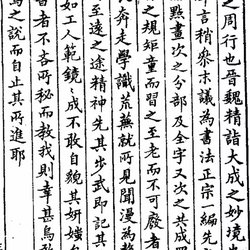 之周行也晉魏精詣大成之妙境
言稍參末議為書法正宗編先
點畫次之分部及全字又次之共成四
之規矩童而習之至老而不可廢者
奔走學識荒蕪就所見聞漫為
至遠之途精神先其步武即記其
如工人範鏡鏡成不敢自貌其妍媸
者不吝所秘而教我則幸甚烏
為之說而自止其所進耶